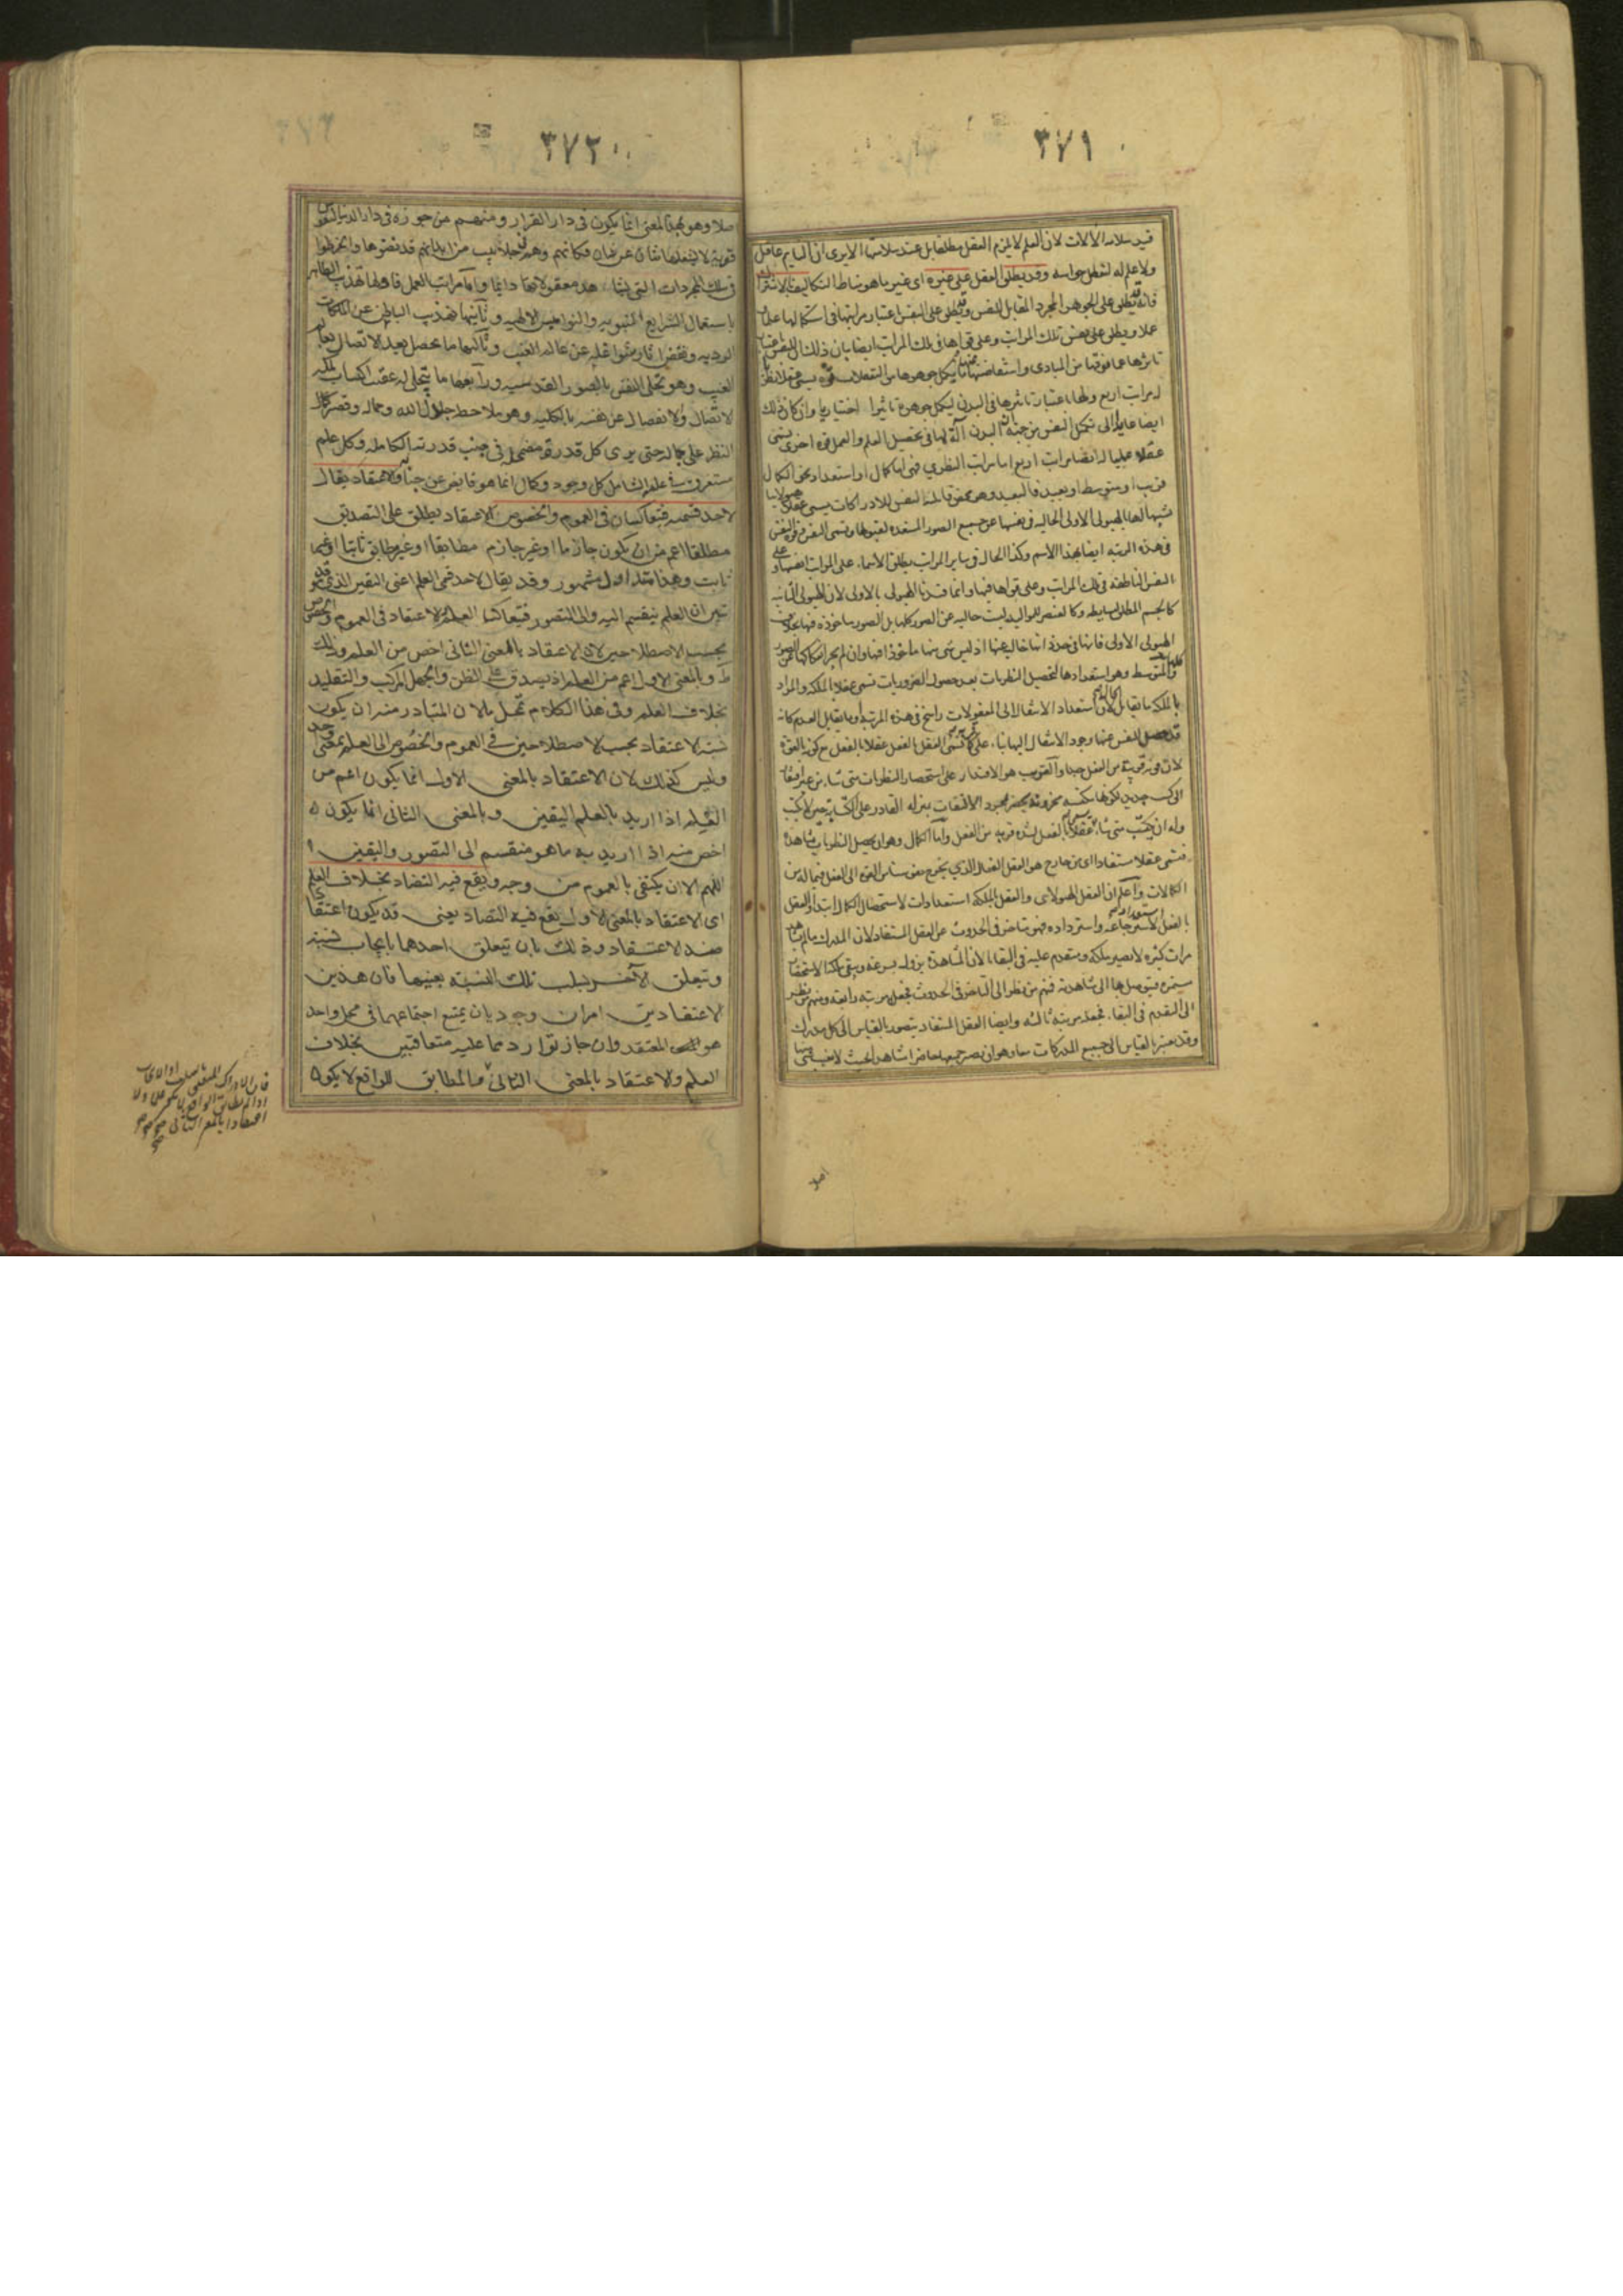 ٣٧١
قيد سلامة الآلات لان العلم لا يلزم العقل مطلقا بل عند سلامتها الا يرى ان النايم عاقل
ولا علم له لتعطل حواسه وقد يطلق العقل على غيره اى غير ما هو مناط التكاليف بالاشتراك
فانه يطلق على الجوهر المجرد المقابل للنفس وقد يطلق على النفس باعتبار مراتبها فى استكمالها علما
عملا ويطلق على نفس تلك المراتب وعلى قواها فى تلك المراتب ايضا بيان ذلك ان للنفس باعتبار
تاثرها عما فوقها من المبادى واستفاضتها عنها ما يكمل جوهرها من التعقلات قوة يسمى عقلا نظريا
له مراتب اربع ولها باعتبار تاثيرها فى البدن ليكمل جوهره تاثيرا اختياريا وان كان ذلك
ايضا عايدا الى تكميل النفس من جهة ان البدن آلة لها فى تحصيل العلم والعمل قوة اخرى يسمى
عقلا عمليا له ايضا مراتب اربع اما مراتب النظرى فهى اما كمال او استعداد نحو الكمال
قريب او متوسط او بعيد فالبعيد وهو محض قابلية النفس للادراكات يسمى عقلا هيولانيا
تشبيها لها بالهيولى الاولى الخالية فى نفسها عن جميع الصور المستعدة لقبولها وتسمى النفس وقوة النفس
فى هذه المرتبة ايضا بهذا الاسم وكذا الحال فى ساير المراتب يطلق الاسماء على المراتب انفسها وعلى
النفس الناطقة فى تلك المراتب وعلى قواها فيها وانما قيدنا الهيولى بالاولى لان الهيولى الثانية
كالجسم المطلق لبسايطه وكالعنصر للمواليد ليست خالية عن الصور كلها بل الصور ماخوذة فيها بخلاف
الهيولى الاولى فانها فى حد ذاتها خالية عنها اذ ليس شى منها ماخوذا فيها وان لم يجز انفكاكها عن الصور
كلها والمتوسط وهو استعدادها لتحصيل النظريات بعد حصول الضروريات تسمى عقلا بالملكة والمراد
بالملكة ما يقابل الحال لان استعداد الانتقال الى المعقولات راسخ فى هذه المرتبة او ما يقابل العدم كانه
قد حصل للنفس فيها وجود الانتقال اليها بناء على قربه كما تسمى العقل بالفعل عقلا بالفعل مع كونه بالقوة
لان قوته قريبة من الفعل جدا والقريب هو الاقتدار على استحضار النظريات متى شاء من غير افتقار
الى كسب جديد لكونها مكتسبة مخزونة يحضر بمجرد الالتفات بمنزلة القادر على الكتابة حين لا يكتب
وله ان يكتب متى شاء يسمى عقلا بالفعل لشدة قربه من الفعل واما الكمال وهو ان يحصل النظريات مشاهدة
فتسمى عقلا مستفادا اى من خارج هو العقل الفعال الذى يخرج نفوسنا من القوة الى الفعل فيما له من
الكمالات واعلم ان العقل الهيولانى والعقل بالملكة استعدادات لاستحصال الكمال ابتداء والعقل
بالفعل استعداد لاسترجاعه واسترداده فهو متاخر فى الحدوث عن العقل المستفاد لان المدرك ما لم يشاهد
مرات كثيرة لا يصير ملكة ومتقدم عليه فى البقاء لان المشاهدة يزول بسرعة ويبقى ملكة الاستحضار
مستمرة فيتوصل بها الى مشاهدته فمنهم من نظر الى التاخر فى الحدوث فجعله مرتبة رابعة ومنهم من نظر
الى التقدم فى البقاء فجعله مرتبة ثالثة وايضا العقل المستفاد يتصور بالقياس الى كل مدرك
وقد يعتبر بالقياس الى جميع المدركات معا وهو ان يصير جميعها حاضرا مشاهدا بحيث لا يغيب شى منها
اصلا
٣٧٢
اصلا وهو بهذا المعنى انما يكون فى دار القرار ومنهم من جوزه فى دار الدنيا لنفوس
قوية لا يشغلها شان عن شان فكانهم وهم فى جلابيب من ابدانهم قد نضوها وانخرطوا
فى سلك المجردات التى يشاهد معقولاتها دايما واما مراتب العمل فاولها تهذيب الظاهر
باستعمال الشرايع النبوية والنواميس الالهية وثانيها تهذيب الباطن عن الملكات
الردية ونقض اثار شواغله عن عالم الغيب وثالثها ما يحصل بعد الاتصال بعالم
الغيب وهو تحلى النفس بالصور القدسية ورابعها ما يتجلى له عقيب اكتساب ملكة
الاتصال والانفصال عن نفسه بالكلية وهو ملاحظة جلال الله وجماله وقصر
النظر على كماله حتى يرى كل قدرة مضمحلة فى جنب قدرته الكاملة وكل علم
مستغرق فى علمه الشامل كل وجود وكمال انما هو فايض عن جنابه والاعتقاد يقال
لاحد قسميه فيتعاكسان فى العموم والخصوص الاعتقاد يطلق على التصديق
مطلقا اعم من ان يكون جازما او غير جازم مطابقا او غير مطابق ثابتا او غير
ثابت وهذا متداول مشهور وقد يقال لاحد قسمى العلم اعنى اليقين الذى قد
تبين ان العلم ينقسم اليه والى التصور فيتعاكس العلم والاعتقاد فى العموم والخصوص
بحسب الاصطلاحين لان الاعتقاد بالمعنى الثانى اخص من العلم وذلك
ظ وبالمعنى الاول اعم من العلم اذ يصدق على الظن والجهل المركب والتقليد
بخلاف العلم وفى هذا الكلام تمحل لان المتبادر منه ان يكون
نسبة الاعتقاد بحسب الاصطلاحين فى العموم والخصوص الى العلم بمعنى واحد
وليس كذلك لان الاعتقاد بالمعنى الاول انما يكون اعم من
العلم اذا اريد بالعلم اليقين وبالمعنى الثانى انما يكون
اخص منه اذا اريد به ما هو منقسم الى التصور واليقين
اللهم الا ان يكتفى بالعموم من وجه ويقع فيه التضاد بخلاف العلم
اى الاعتقاد بالمعنى الاول يقع فيه التضاد يعنى قد يكون اعتقاد
ضد الاعتقاد وذلك بان يتعلق احدهما بايجاب نسبة
ويتعلق الآخر بسلب تلك النسبة بعينها فان هذين
الاعتقادين امران وجوديان يمتنع اجتماعهما فى محل واحد
هو المعتقد وان جاز تواردهما عليه متعاقبين بخلاف
العلم والاعتقاد بالمعنى الثانى فالمطابق للواقع لا يكون
فان الادراك المتعلق باحد
اذا لم يطابق الواقع لم يكن علما ولا
اعتقادا بالمعنى الثانى